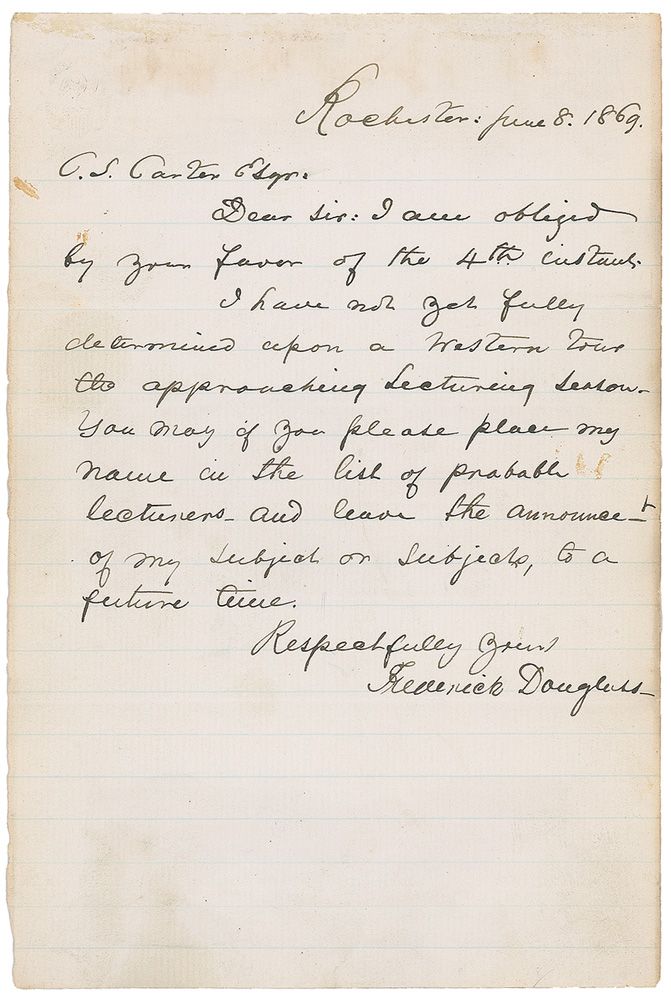 Rochester: June 8. 1869.
C. S. Carter Esqr:
Dear Sir: I am obliged
by your favor of the 4th instant.
I have not yet fully
determined upon a Western tour
the approaching Lecturing Season.
You may if you please place my
name in the list of probable
lecturers - and leave the announce-t
of my subject or subjects, to a
future time.
Respectfully yours
Frederick Douglass-